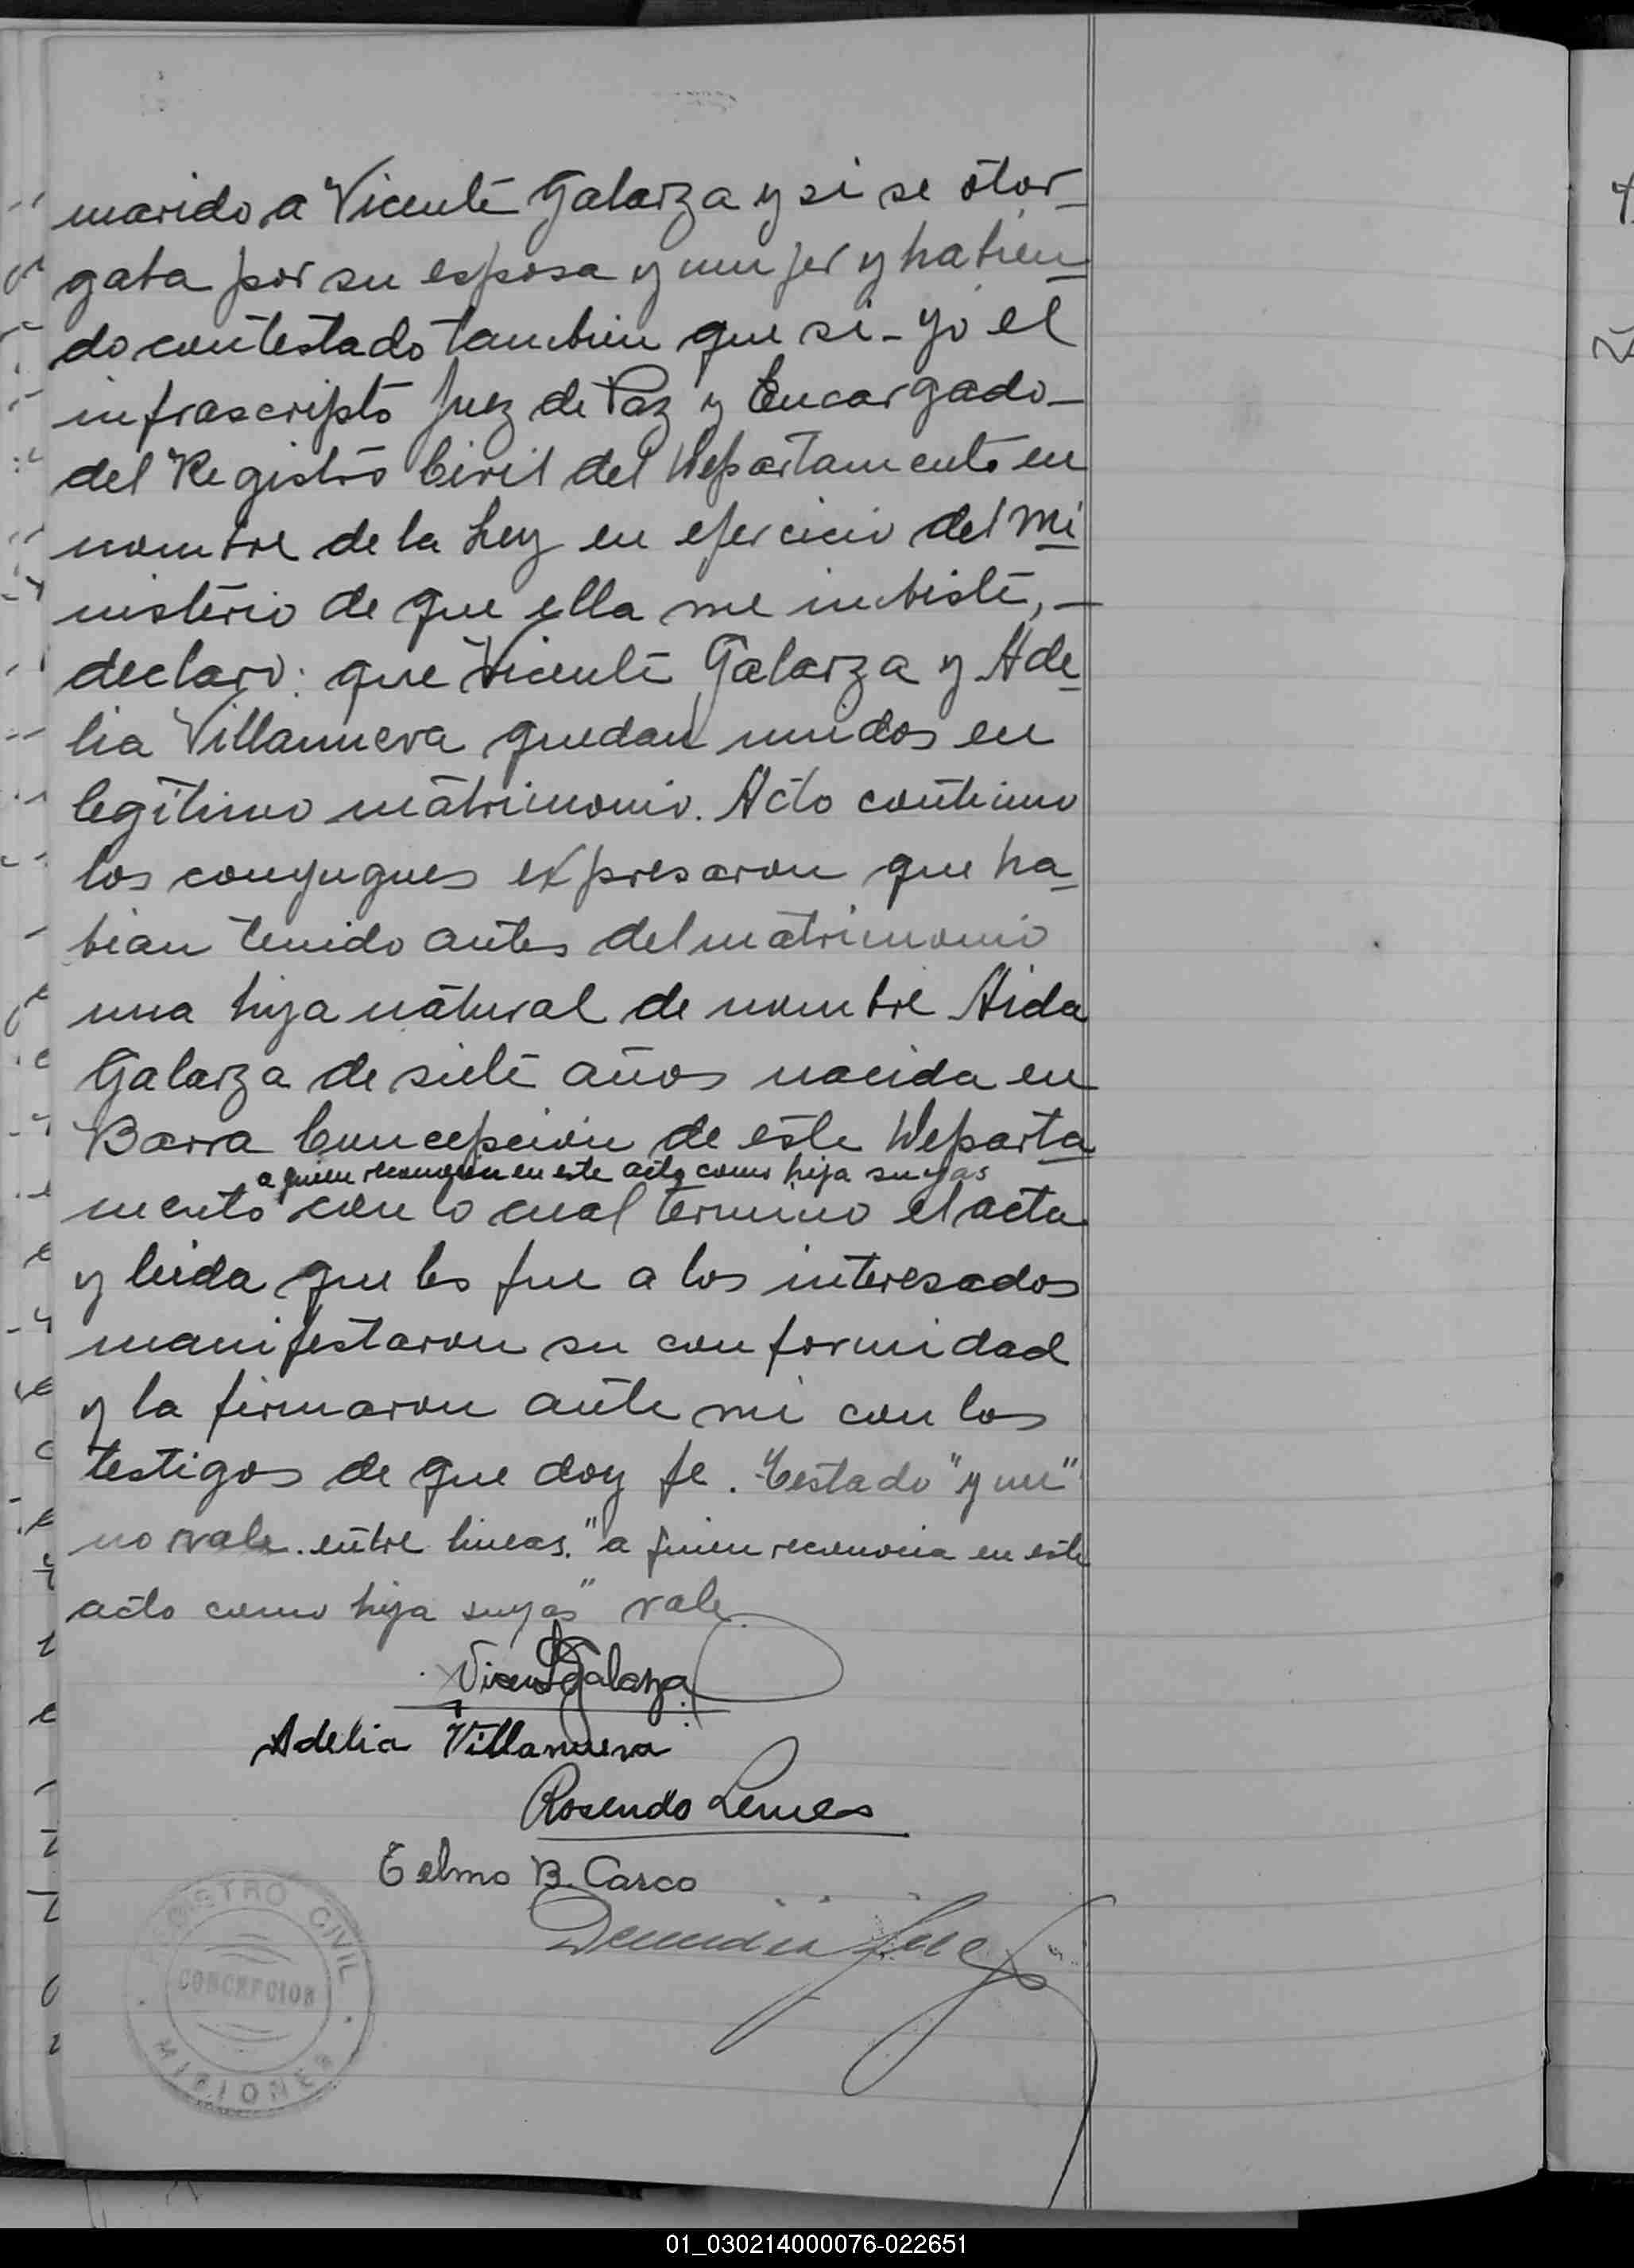 marido a Vicente Galarza y si se otor-
gaba por su esposa y mujer y habien
do contestado tambien que si - yo el
infrascripto Juez de Paz y Encargado -
del Registro Civil del Departamento en
nombre de la Ley en ejercicio del Mi
nisterio de que ella me inbiste, -
declaro: que Vicente Galarza y Ade
lia Villanueva quedan unidos en
legitimo matrimonio. Acto continuo
los conyugues expresaron que ha
bian tenido antes del matrimonio
una hija natural de nombre Aida
Galarza de siete años nacida en
Barra Concepcion de este Departa
a quien reconocen en este acto como hija suyas
mento con lo cual termino el acta
y leida que les fue a los interesados
manifestaron su conformidad
y la firmaron ante mi con los
testigos de que doy fe. Testado "y un"
no vale. entre lineas. "a quien reconocia en este
acto como hija suyas" vale
Vicente Galarza
Adelia Villanueva
Rosendo Lemes
Telmo B. Casco
REGISTRO CIVIL
CONCEPCION
MISIONES
01_030214000076-022651